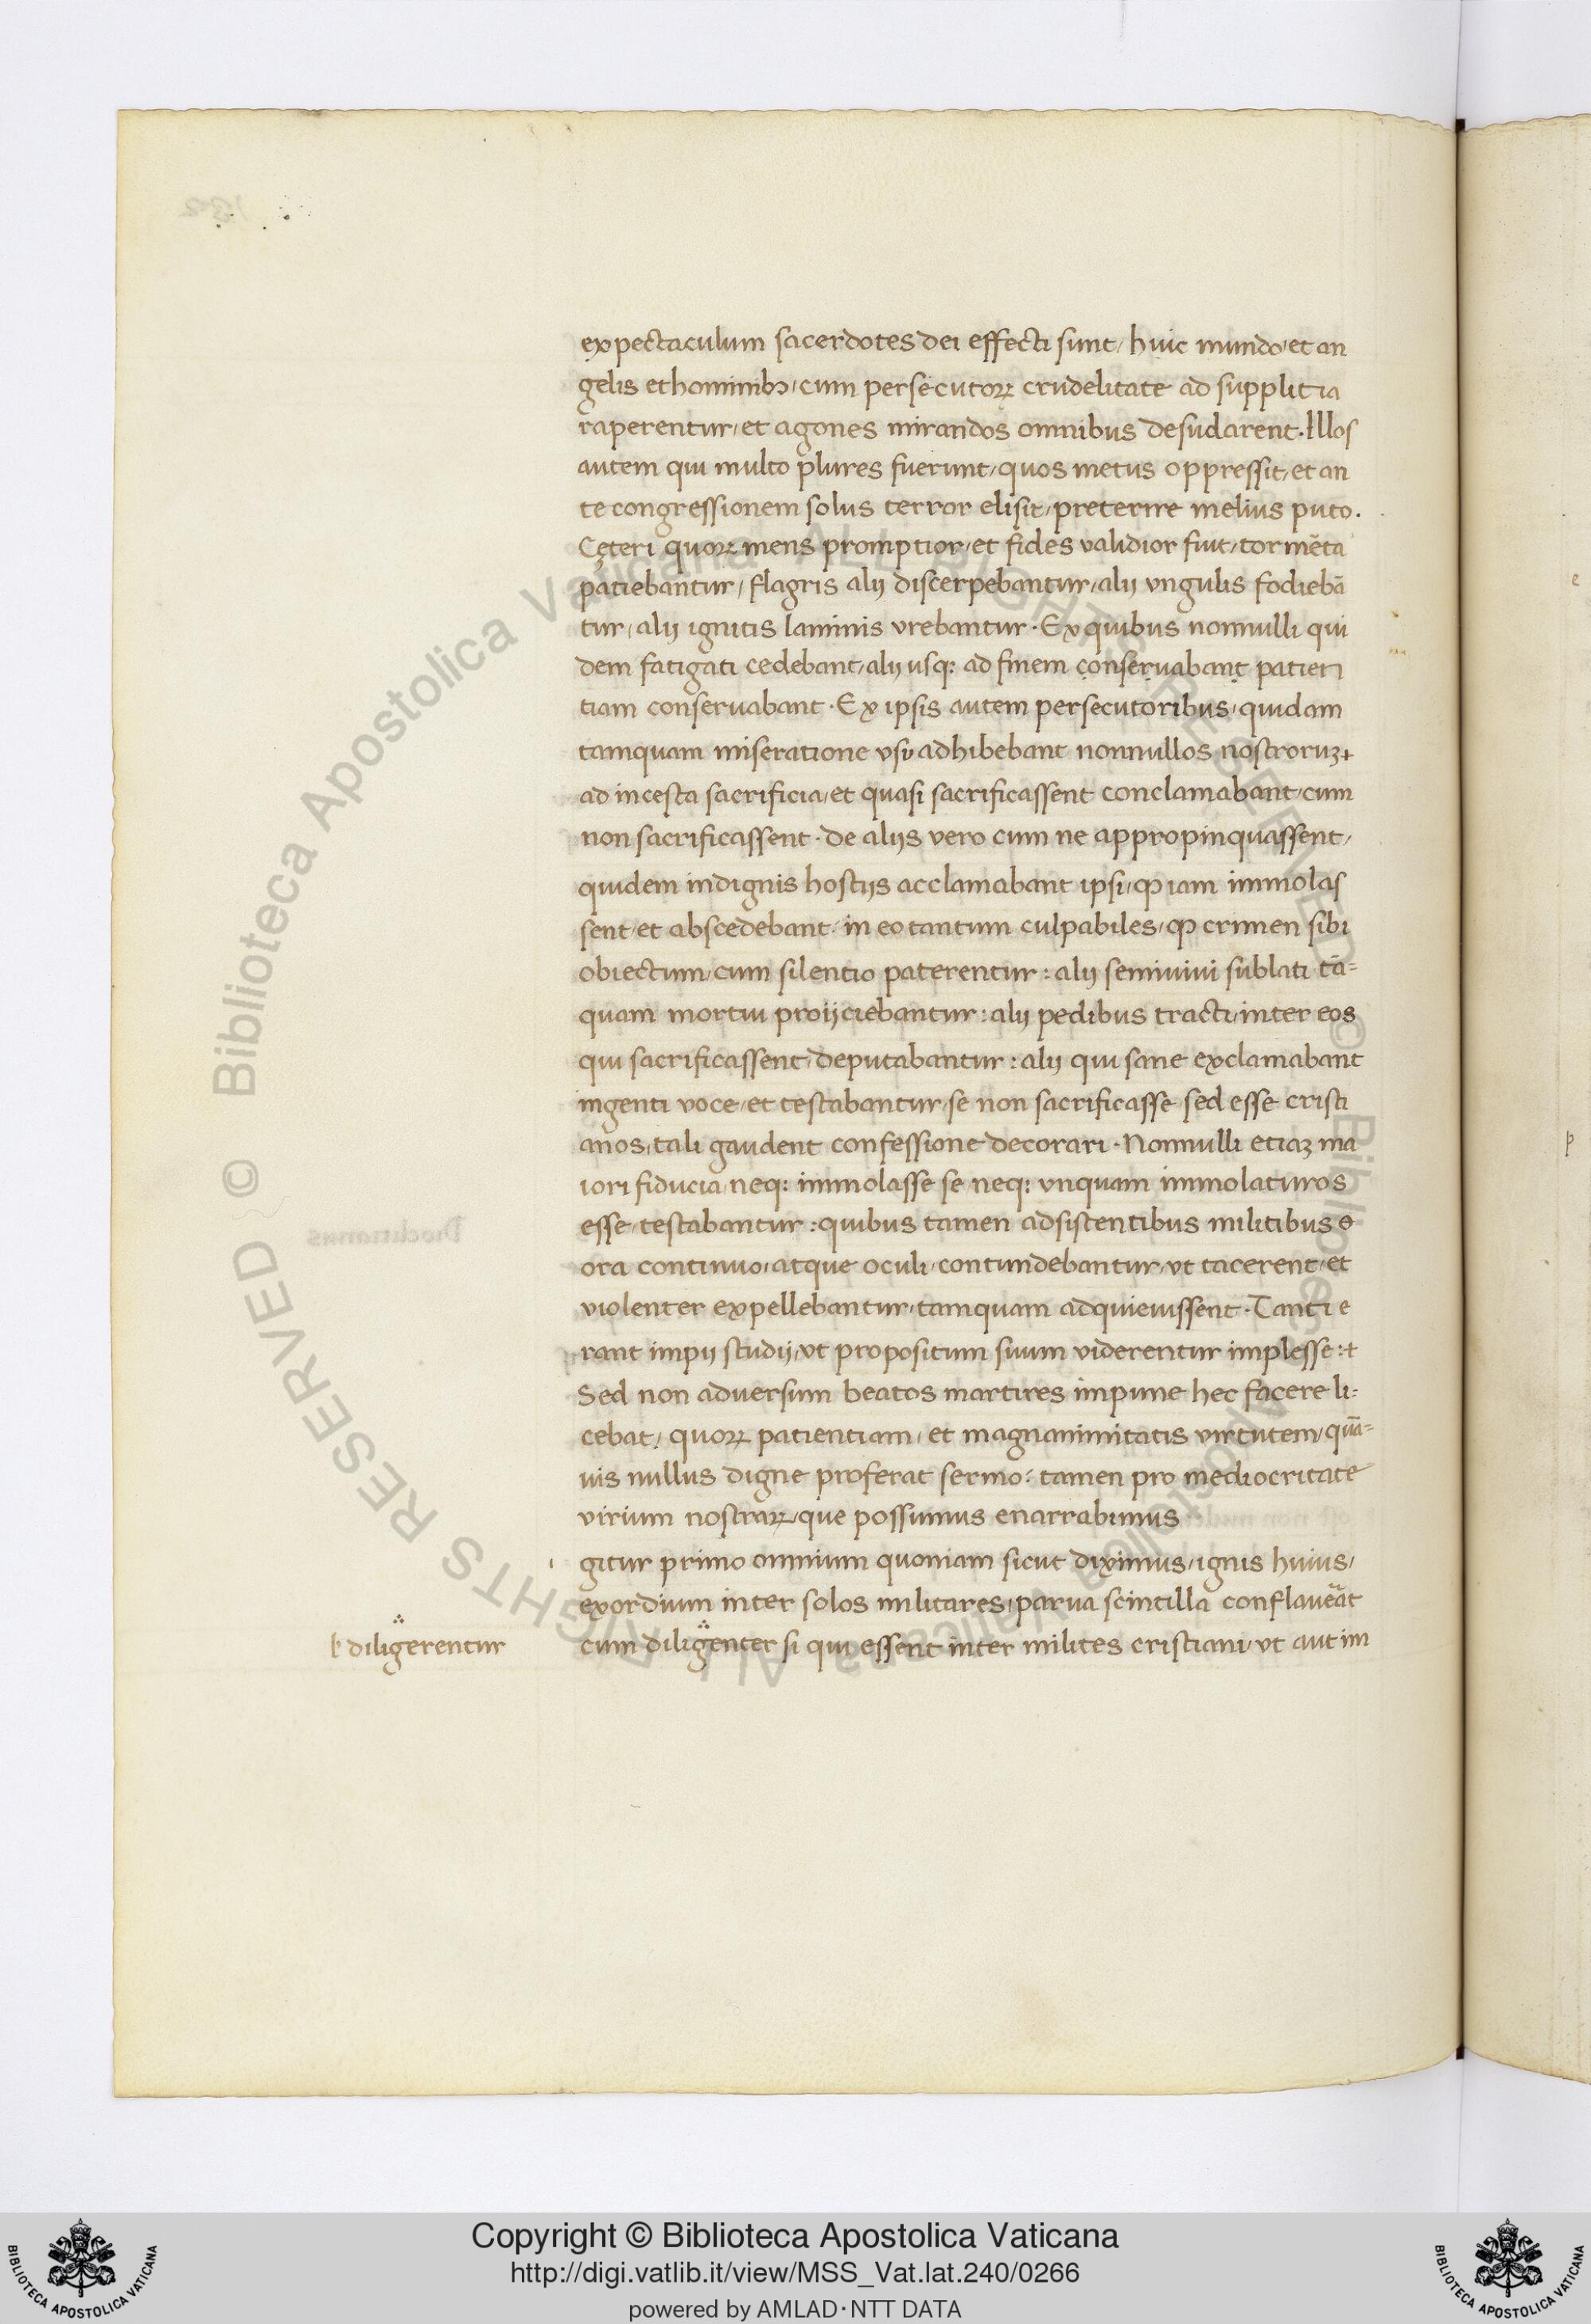 expectaculum sacerdotes dei effecti sunt / huic mundo / et an
gelis et hominibꝫ / cum persecutoꝝ crudelitate ad supplitia
raperentur / et agones mirandos omnibus desudarent · Illos
autem qui multo plures fuerunt / quos metus oppressit / et an
te congressionem solus terror elisit / preterire melius puto .
Cęteri quoꝝ mens promptior / et fides validior fuit / tormẽta
patiebantur / flagris alij discerpebantur / alij vngulis fodiebã
tur / alij ignitis laminis vrebantur · Ex quibus nonnulli qui
dem fatigati cedebant / alij usqꝫ ad finem conseruabant patien
tiam conseruabant · Ex ipsis autem persecutoribus / quidam
tamquam miseratione vsi adhibebant nonnullos nostroruꝫ +
ad incesta sacrificia / et quasi sacrificassent conclamabant / cum
non sacrificassent · de alijs vero cum ne appropinquassent /
quidem indignis hostijs acclamabant ipsi / ꝙ iam immolas
sent / et abscedebant / in eo tantum culpabiles / ꝙ crimen sibi
obiectum / cum silentio paterentur : alij seminiui sublati tã=
quam mortui proijciebantur : alij pedibus tracti / inter eos
qui sacrificassent / deputabantur : alij qui sane exclamabant
ingenti voce / et testabantur / se non sacrificasse / sed esse cristi
anos / tali gaudent confessione decorari · Nonnulli etiaꝫ ma
iori fiducia / neqꝫ immolasse se neqꝫ vnquam immolaturos
esse / testabantur : quibus tamen adsistentibus militibus o
ora continuo / atque oculi / contundebantur / vt tacerent / et
violenter expellebantur / tamquam adquieuissent · Tanti e
rant impij studij / vt propositum suum viderentur implesse : +
Sed non aduersum beatos martires impune hec facere li=
cebat / quoꝝ patientiam / et magnanimitatis virtutem / quã=
uis nullus digne proferat sermo : tamen pro mediocritate
virium nostraꝝ / que possumus enarrabimus
i gitur primo omnium quoniam sicut diximus / ignis huius /
exordium inter solos militares / parua scintilla conflauẽat
cum diligenter si qui essent inter milites cristiani / vt aut im
diligerentur
Copyright © Biblioteca Apostolica Vaticana
http://digi.vatlib.it/view/MSS_Vat.lat.240/0266
powered by AMLAD·NTT DATA
BIBLIOTECA APOSTOLICA VATICANA
BIBLIOTECA APOSTOLICA VATICANA
© Biblioteca Apostolica Vaticana ALL RIGHTS RESERVED
© Biblioteca Apostolica Vaticana ALL RIGHTS RESERVED